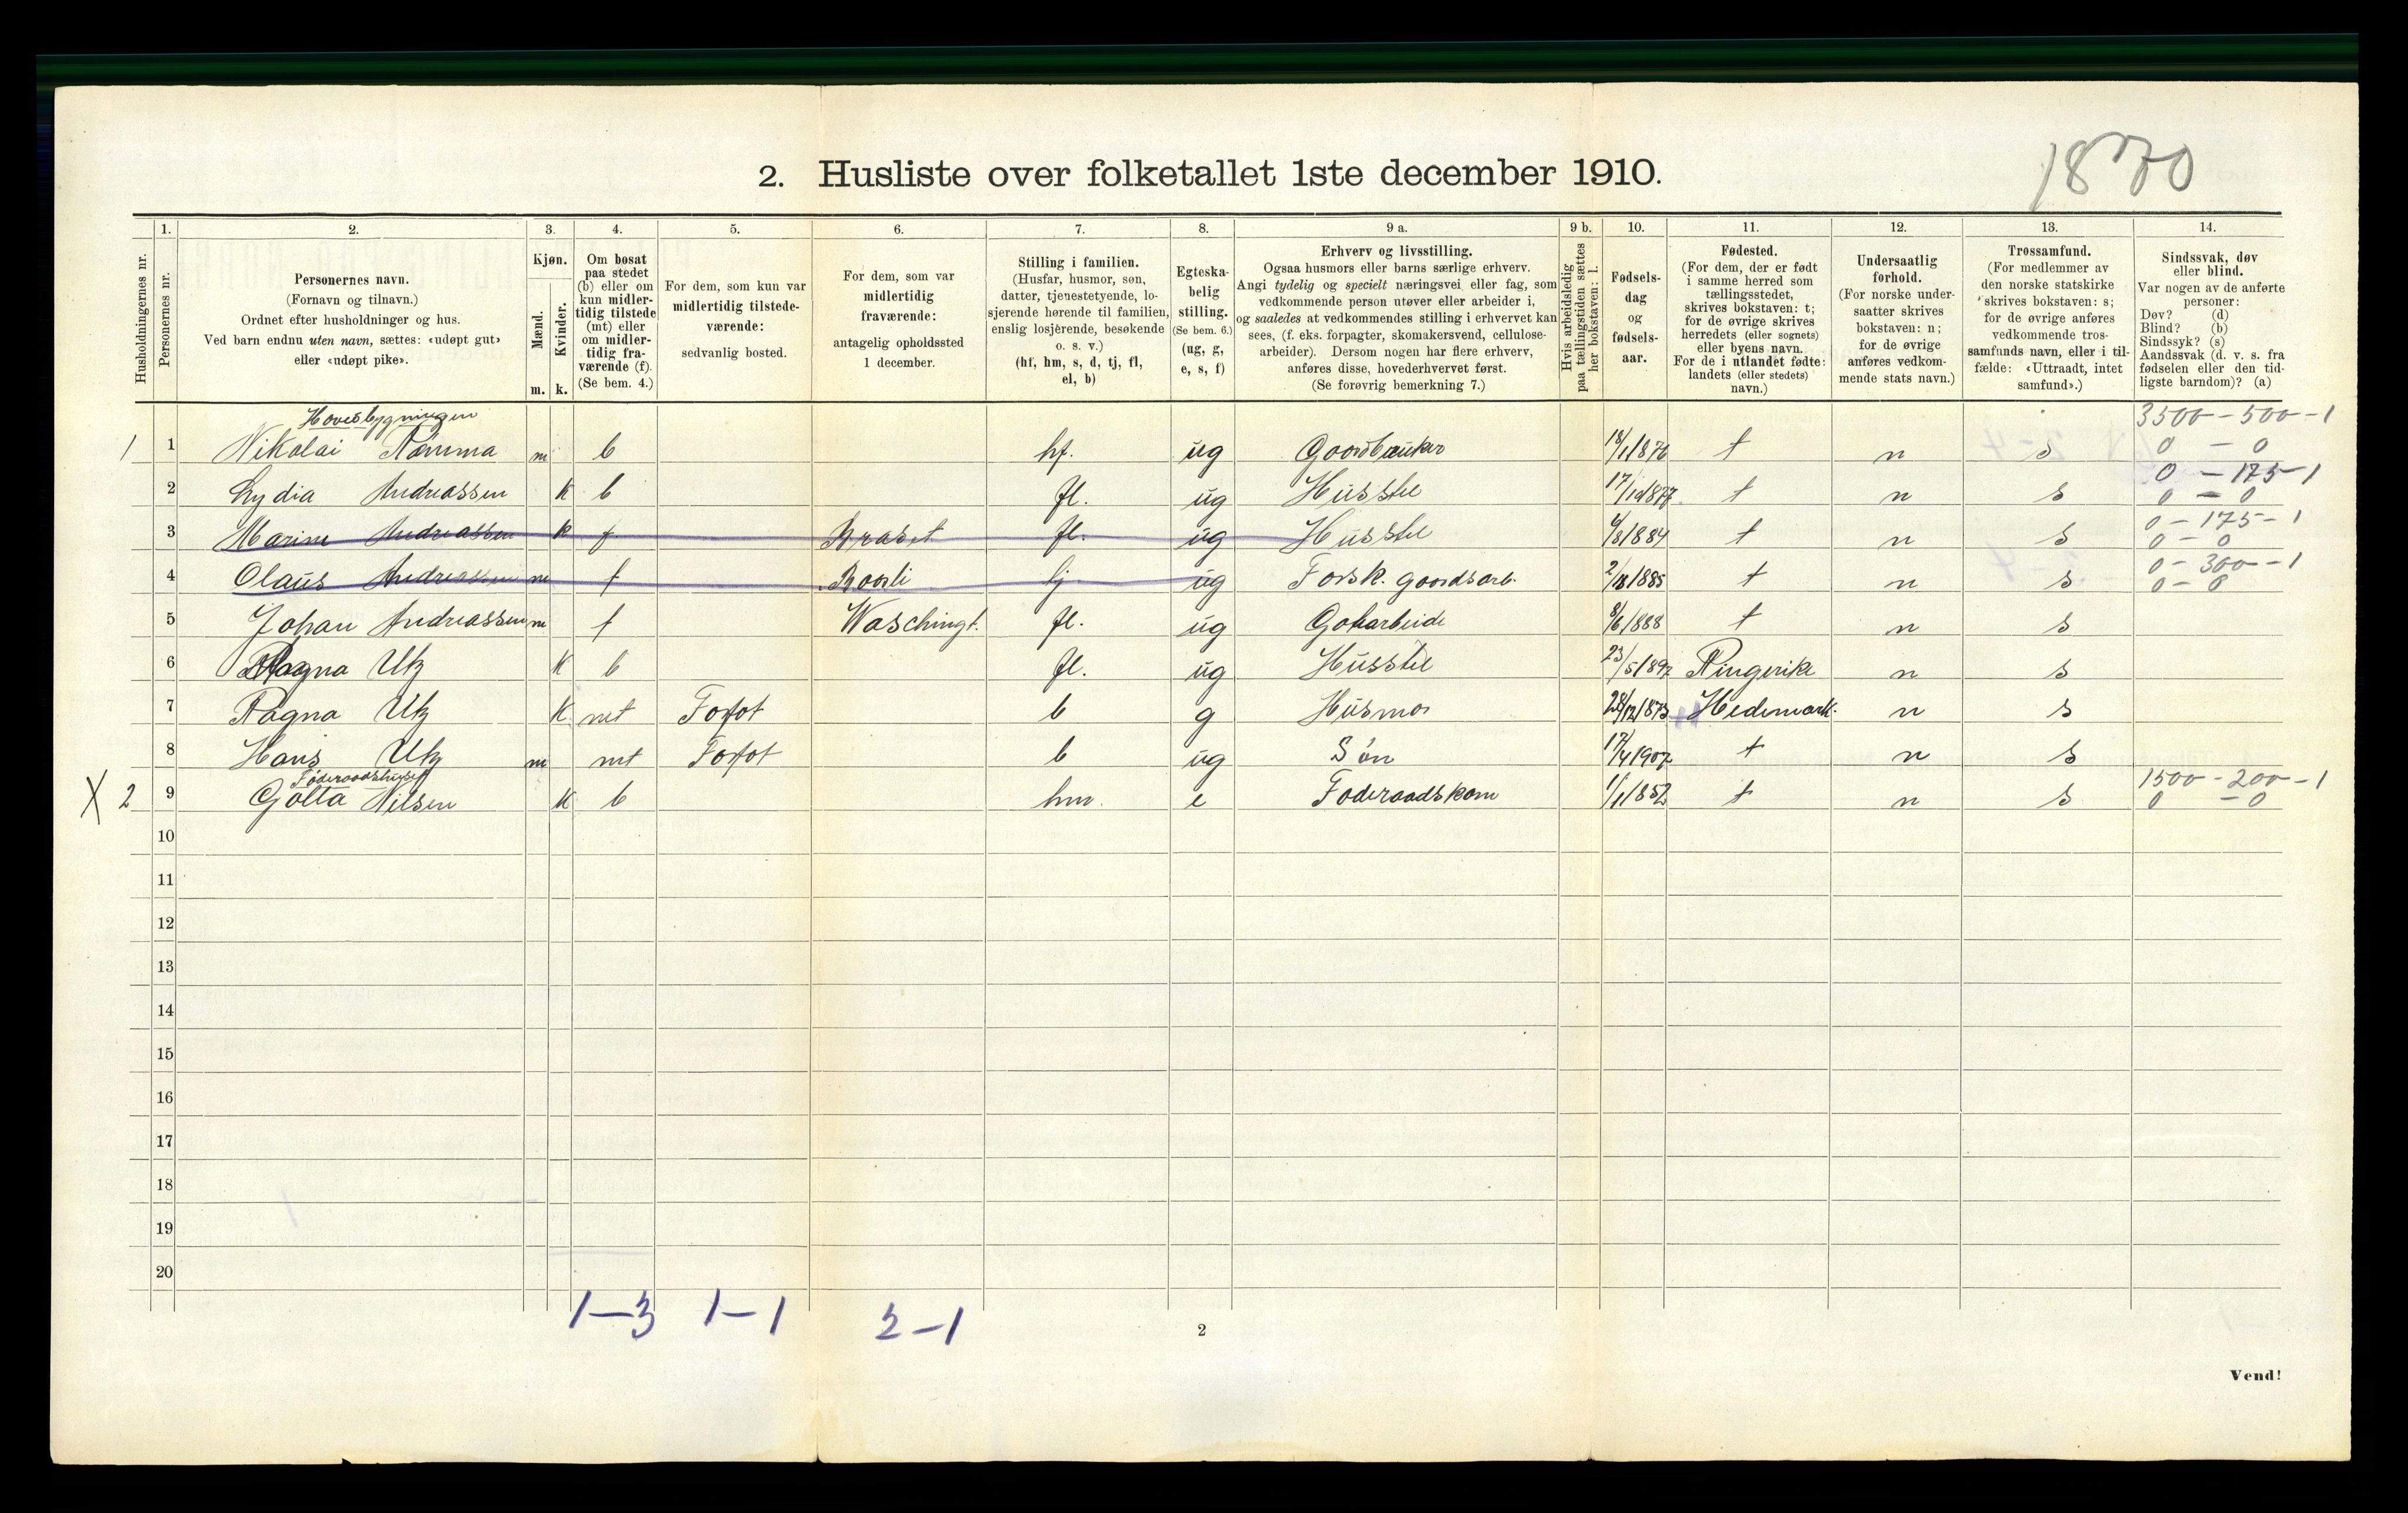 1870
2. Husliste over folketallet 1ste december 1910.
Husholdningernes nr.
1.
Personernes nr.
2.
Personernes navn.
(Fornavn og tilnavn.)
Ordnet efter husholdninger og hus.
Ved barn endnu uten navn, sættes: «udøpt gut»
eller «udøpt pike».
3.
Kjøn.
Mænd.
Kvinder.
m. k.
4.
Om bosat
paa stedet
(b) eller om
kun midler-
tidig tilstede
(mt) eller
om midler-
tidig fra-
værende (f).
(Se bem. 4.)
5.
For dem, som kun var
midlertidig tilstede-
værende:
sedvanlig bosted.
6.
For dem, som var
midlertidig
fraværende:
antagelig opholdssted
1 december.
7.
Stilling i familien.
(Husfar, husmor, søn,
datter, tjenestetyende, lo-
sjerende hørende til familien,
enslig losjerende, besøkende
o. s. v.)
(hf, hm, s, d, tj, fl,
el, b)
8.
Egteska-
belig
stilling.
(Se bem. 6.)
(ug, g,
e, s, f)
9 a.
Erhverv og livsstilling.
Ogsaa husmors eller barns særlige erhverv.
Angi tydelig og specielt næringsvei eller fag, som
vedkommende person utøver eller arbeider i,
og saaledes at vedkommendes stilling i erhvervet kan
sees, (f. eks. forpagter, skomakersvend, cellulose-
arbeider). Dersom nogen har flere erhverv,
anføres disse, hovederhvervet først.
(Se forøvrig bemerkning 7.)
9 b.
Hvis arbeidsledig
paa tællingstiden sættes
her bokstaven: l.
10.
Fødsels-
dag
og
fødsels-
aar.
11.
Fødested.
(For dem, der er født
i samme herred som
tællingsstedet,
skrives bokstaven: t;
for de øvrige skrives
herredets (eller sognets)
eller byens navn.
For de i utlandet fødte:
landets (eller stedets)
navn.)
12.
Undersaatlig
forhold.
(For norske under-
saatter skrives
bokstaven: n;
for de øvrige
anføres vedkom-
mende stats navn.)
13.
Trossamfund.
(For medlemmer av
den norske statskirke
skrives bokstaven: s;
for de øvrige anføres
vedkommende tros-
samfunds navn, eller i til-
fælde: «Uttraadt, intet
samfund».)
14.
Sindssvak, døv
eller blind.
Var nogen av de anførte
personer:
Døv? (d)
Blind? (b)
Sindssyk? (s)
Aandssvak (d. v. s. fra
fødselen eller den tid-
ligste barndom)? (a)
3500 - 500 - 1
1 1 Nikolai m b hf. ug t n s 0 - 0
0 - 175 - 1
2 Lydia Andreassen k b fl. ug Husstel t n s 0 - 0
0 - 175 - 1
3 Marine Andreassen k f fl. ug Husstel t n s 0 - 0
0 - 300 - 1
4 Olaus Andreassen m f ug t n s 0 - 0
5 Johan Andreassen m f Waschingt. fl. ug 8/6 1888 t n s
6 Ragna Utz k b fl. ug Husstel Ringerike n s
7 Ragna Utz k mt b g Husmor 28/12 1873 Hedemark. n s
8 Hans Utz m mt b ug Søn 17/4 1907 t n s
Føderaadshuset 1500 - 200 - 1
X 2 9 Nilsen k b hm. e Føderaadskone 1/1 1852 t n s 0 - 0
10
11
12
13
14
15
16
17
18
19
20
1-3 1-1 2-1
2
Vend!